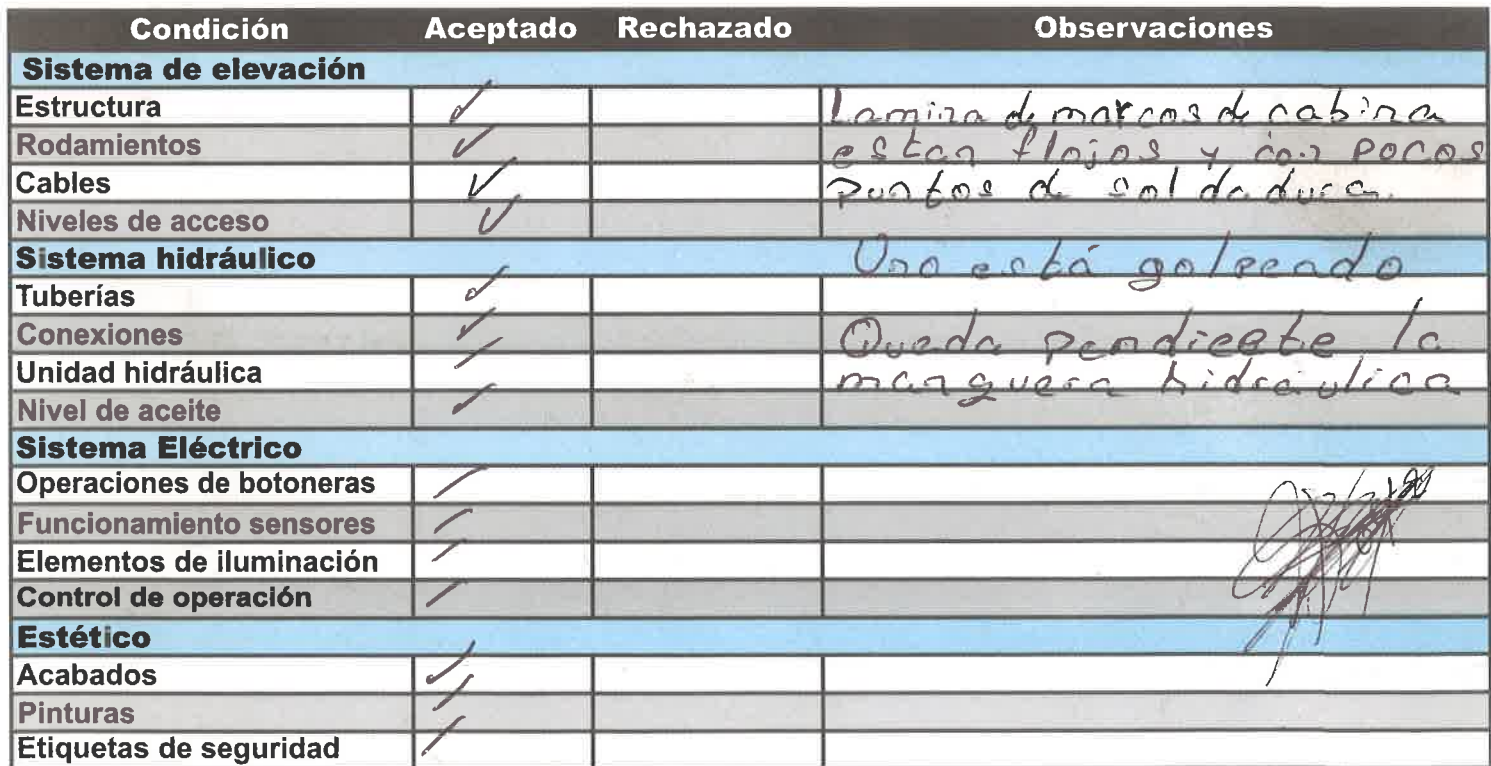 Condición Aceptado Rechazado Observaciones
Sistema de elevación
Estructura ✓ Lamina de marcos de cabina
Rodamientos ✓ estan flojos y con pocos
Cables ✓ puntos de soldadura.
Niveles de acceso ✓
Sistema hidráulico Uno está golpeado
Tuberías ✓
Conexiones ✓ Queda pendieete la
Unidad hidráulica ✓ manguera hidráulica
Nivel de aceite ✓
Sistema Eléctrico
Operaciones de botoneras ✓
Funcionamiento sensores ✓
Elementos de iluminación ✓
Control de operación ✓
Estético
Acabados ✓
Pinturas ✓
Etiquetas de seguridad ✓